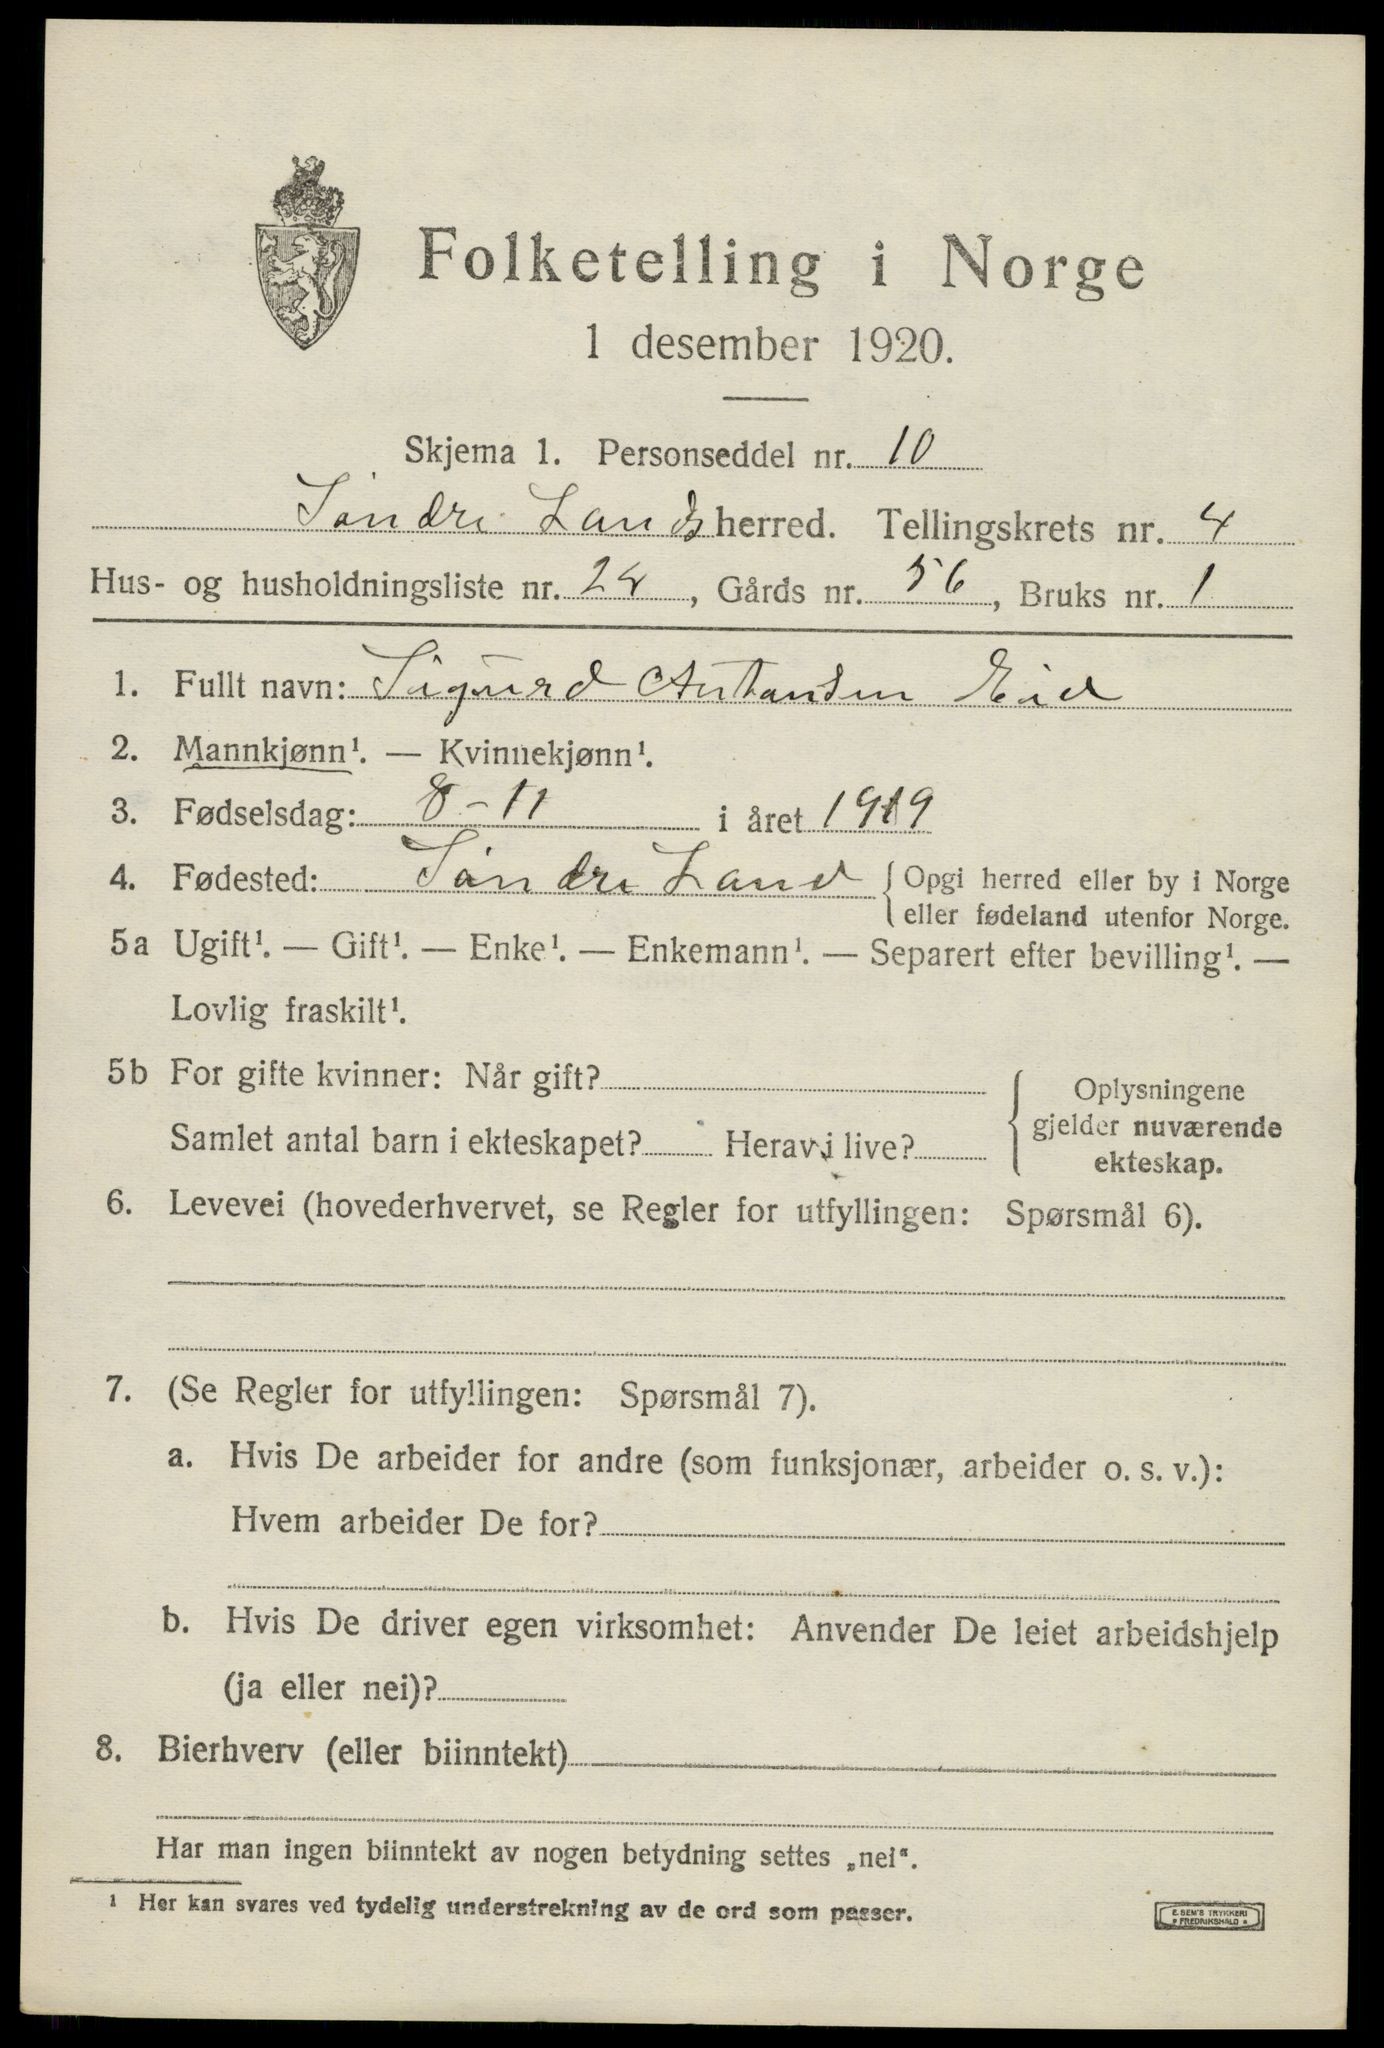 Folketelling i Norge
1 desember 1920.
Skjema 1. Personseddel nr. 10
Söndre Lands herred. Tellingskrets nr. 4
Hus- og husholdningsliste nr. 24, Gårds nr. 56, Bruks nr. 1
1. Fullt navn: Sigurd Antonsen Eid
2. Mannkjønn¹. — Kvinnekjønn¹.
3. Fødselsdag: 8-11 i året 1919
4. Fødested: Söndre Land { Opgi herred eller by i Norge
eller fødeland utenfor Norge.
5a Ugift¹. — Gift¹. — Enke¹. — Enkemann¹. — Separert efter bevilling¹. —
Lovlig fraskilt¹.
5b For gifte kvinner: Når gift?
Samlet antal barn i ekteskapet? Herav i live?
Oplysningene
gjelder nuværende
ekteskap.
6. Levevei (hovederhvervet, se Regler for utfyllingen: Spørsmål 6).
7. (Se Regler for utfyllingen: Spørsmål 7).
a. Hvis De arbeider for andre (som funksjonær, arbeider o. s. v.):
Hvem arbeider De for?
b. Hvis De driver egen virksomhet: Anvender De leiet arbeidshjelp
(ja eller nei)?
8. Bierhverv (eller biinntekt)
Har man ingen biinntekt av nogen betydning settes „nei“.
¹ Her kan svares ved tydelig understrekning av de ord som passer.
E. SEM'S TRYKKERI
FREDRIKSHALD